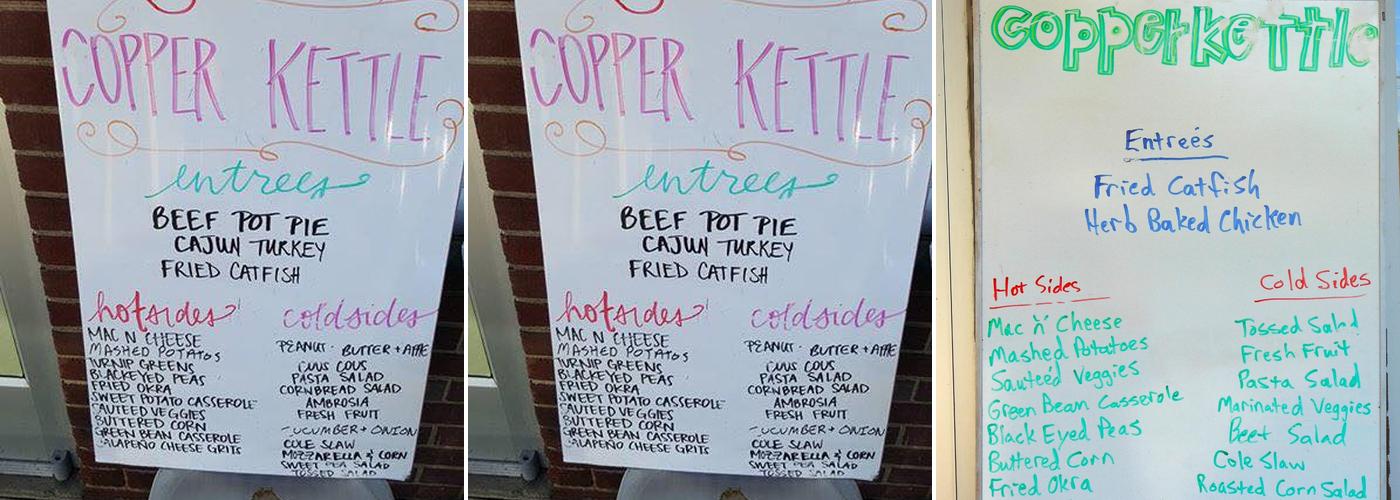 COPPER KETTLE
entrees
BEEF POT PIE
CAJUN TURKEY
FRIED CATFISH
hotsides
MAC N CHEESE
MASHED POTATOS
TURNIP GREENS
BLACKEYED PEAS
FRIED OKRA
SWEET POTATO CASSEROLE
SAUTEED VEGGIES
BUTTERED CORN
GREEN BEAN CASSEROLE
JALAPEÑO CHEESE GRITS
coldsides
PEANUT BUTTER + APPLE
COUS COUS
PASTA SALAD
CORNBREAD SALAD
AMBROSIA
FRESH FRUIT
CUCUMBER + ONION
COLE SLAW
MOZZARELLA & CORN
SWEET PEA SALAD
TOSSED SALAD
COPPER KETTLE
entrees
BEEF POT PIE
CAJUN TURKEY
FRIED CATFISH
hotsides
MAC N CHEESE
MASHED POTATOS
TURNIP GREENS
BLACKEYED PEAS
FRIED OKRA
SWEET POTATO CASSEROLE
SAUTEED VEGGIES
BUTTERED CORN
GREEN BEAN CASSEROLE
JALAPEÑO CHEESE GRITS
coldsides
PEANUT BUTTER + APPLE
COUS COUS
PASTA SALAD
CORNBREAD SALAD
AMBROSIA
FRESH FRUIT
CUCUMBER + ONION
COLE SLAW
MOZZARELLA & CORN
SWEET PEA SALAD
TOSSED SALAD
Copper Kettle
Entreés
Fried Catfish
Herb Baked Chicken
Hot Sides
Mac 'n' Cheese
Mashed Potatoes
Sauteed Veggies
Green Bean Casserole
Black Eyed Peas
Buttered Corn
Fried Okra
Cold Sides
Tossed Salad
Fresh Fruit
Pasta Salad
Marinated Veggies
Beet Salad
Cole Slaw
Roasted Corn Salad